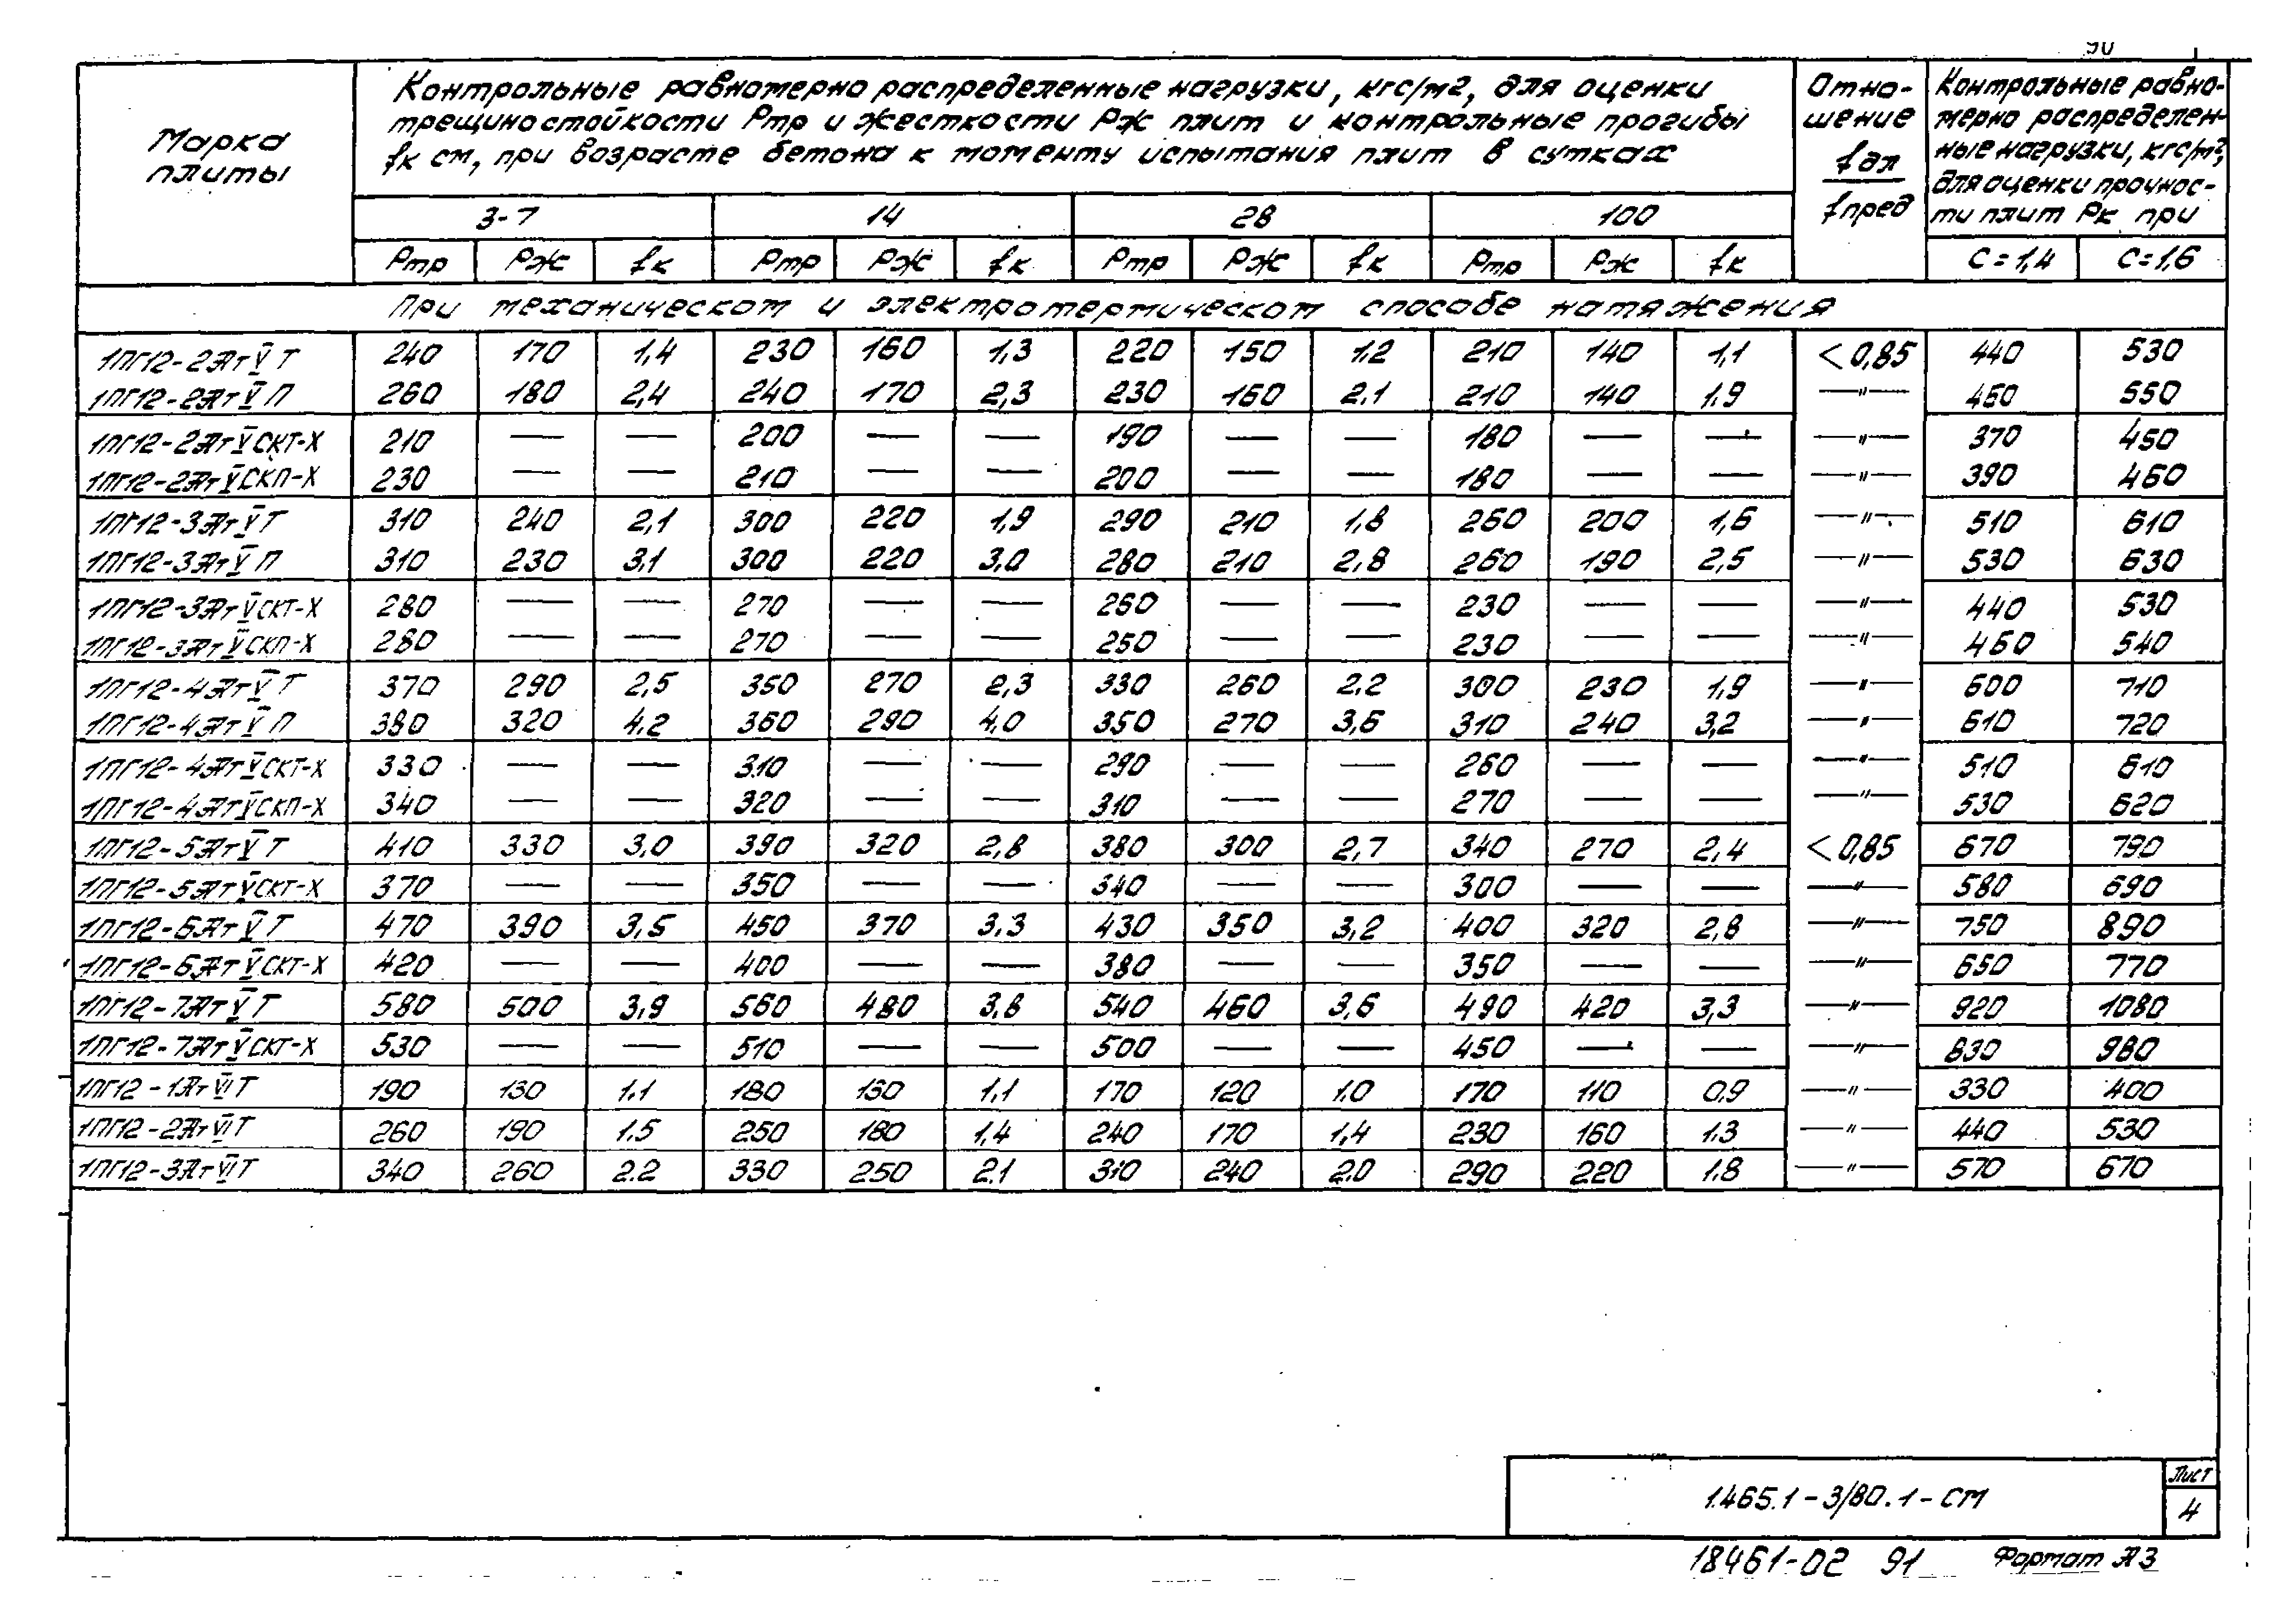 90
Марка плиты
Контрольные равномерно распределенные нагрузки, кгс/м2, для оценки
трещиностойкости Ртр и жесткости Рж плит и контрольные прогибы
fк см, при возрасте бетона к моменту испытания плит в сутках
Отно-
шение
fдл
fпред
Контрольные равно-
мерно распределен-
ные нагрузки, кгс/м2,
для оценки прочнос-
ти плит Рк при
3-7 14 28 100
Ртр Рж fк Ртр Рж fк Ртр Рж fк Ртр Рж fк С=1,4 С=1,6
При механическом и электротермическом способе натяжения
1ПГ12-2АтV Т 240 170 1,4 230 160 1,3 220 150 1.2 210 140 1,1 <0,85 440 530
1ПГ12-2АтV П 260 180 2,4 240 170 2,3 230 160 2.1 210 140 1.9 —"— 460 550
1ПГ12-2АтVСКТ-Х 210 — — 200 — — 190 — — 180 — — —"— 370 450
1ПГ12-2АтVСКП-Х 230 — — 210 — — 200 — — 180 — — —"— 390 460
1ПГ12-3АтVТ 310 240 2,1 300 220 1,9 290 210 1,8 260 200 1,6 —"— 510 610
1ПГ12-3АтV П 310 230 3,1 300 220 3,0 280 210 2,8 260 190 2,5 —"— 530 630
1ПГ12-3АтVСКТ-Х 280 — — 270 — — 260 — — 230 — — —"— 440 530
1ПГ12-3АтVСКП-Х 280 — — 270 — — 250 — — 230 — — —"— 460 540
1ПГ12-4АтV Т 370 290 2,5 350 270 2,3 330 260 2.2 300 230 1,9 —"— 600 710
1ПГ12-4АтV П 380 320 4.2 360 290 4,0 350 270 3,6 310 240 3,2 —"— 610 720
1ПГ12-4АтVСКТ-Х 330 — — 310 — — 290 — — 260 — — —"— 510 610
1ПГ12-4АтVСКП-Х 340 — — 320 — — 310 — — 270 — — —"— 530 620
1ПГ12-5АтV Т 410 330 3,0 390 320 2,8 380 300 2,7 340 270 2,4 <0,85 670 790
1ПГ12-5АтVСКТ-Х 370 — — 350 — — 340 — — 300 — — —"— 580 690
1ПГ12-6АтV Т 470 390 3,5 450 370 3.3 430 350 3,2 400 320 2,8 —"— 750 890
1ПГ12-6АтVСКТ-Х 420 — — 400 — — 380 — — 350 — — —"— 650 770
1ПГ12-7АтV Т 580 500 3,9 560 480 3,8 540 460 3,6 490 420 3,3 —"— 920 1080
1ПГ12-7АтVСКТ-Х 530 — — 510 — — 500 — — 450 — — —"— 830 980
1ПГ12-1АтVIТ 190 130 1.1 180 130 1,1 170 120 1.0 170 110 0.9 —"— 330 400
1ПГ12-2АтVIТ 260 190 1.5 250 180 1,4 240 170 1,4 230 160 1.3 —"— 440 530
1ПГ12-3АтVIТ 340 260 2.2 330 250 2.1 310 240 2.0 290 220 1.8 —"— 570 670
1.465.1-3/80.1-СМ
Лист
4
18461-02 91 Формат А3